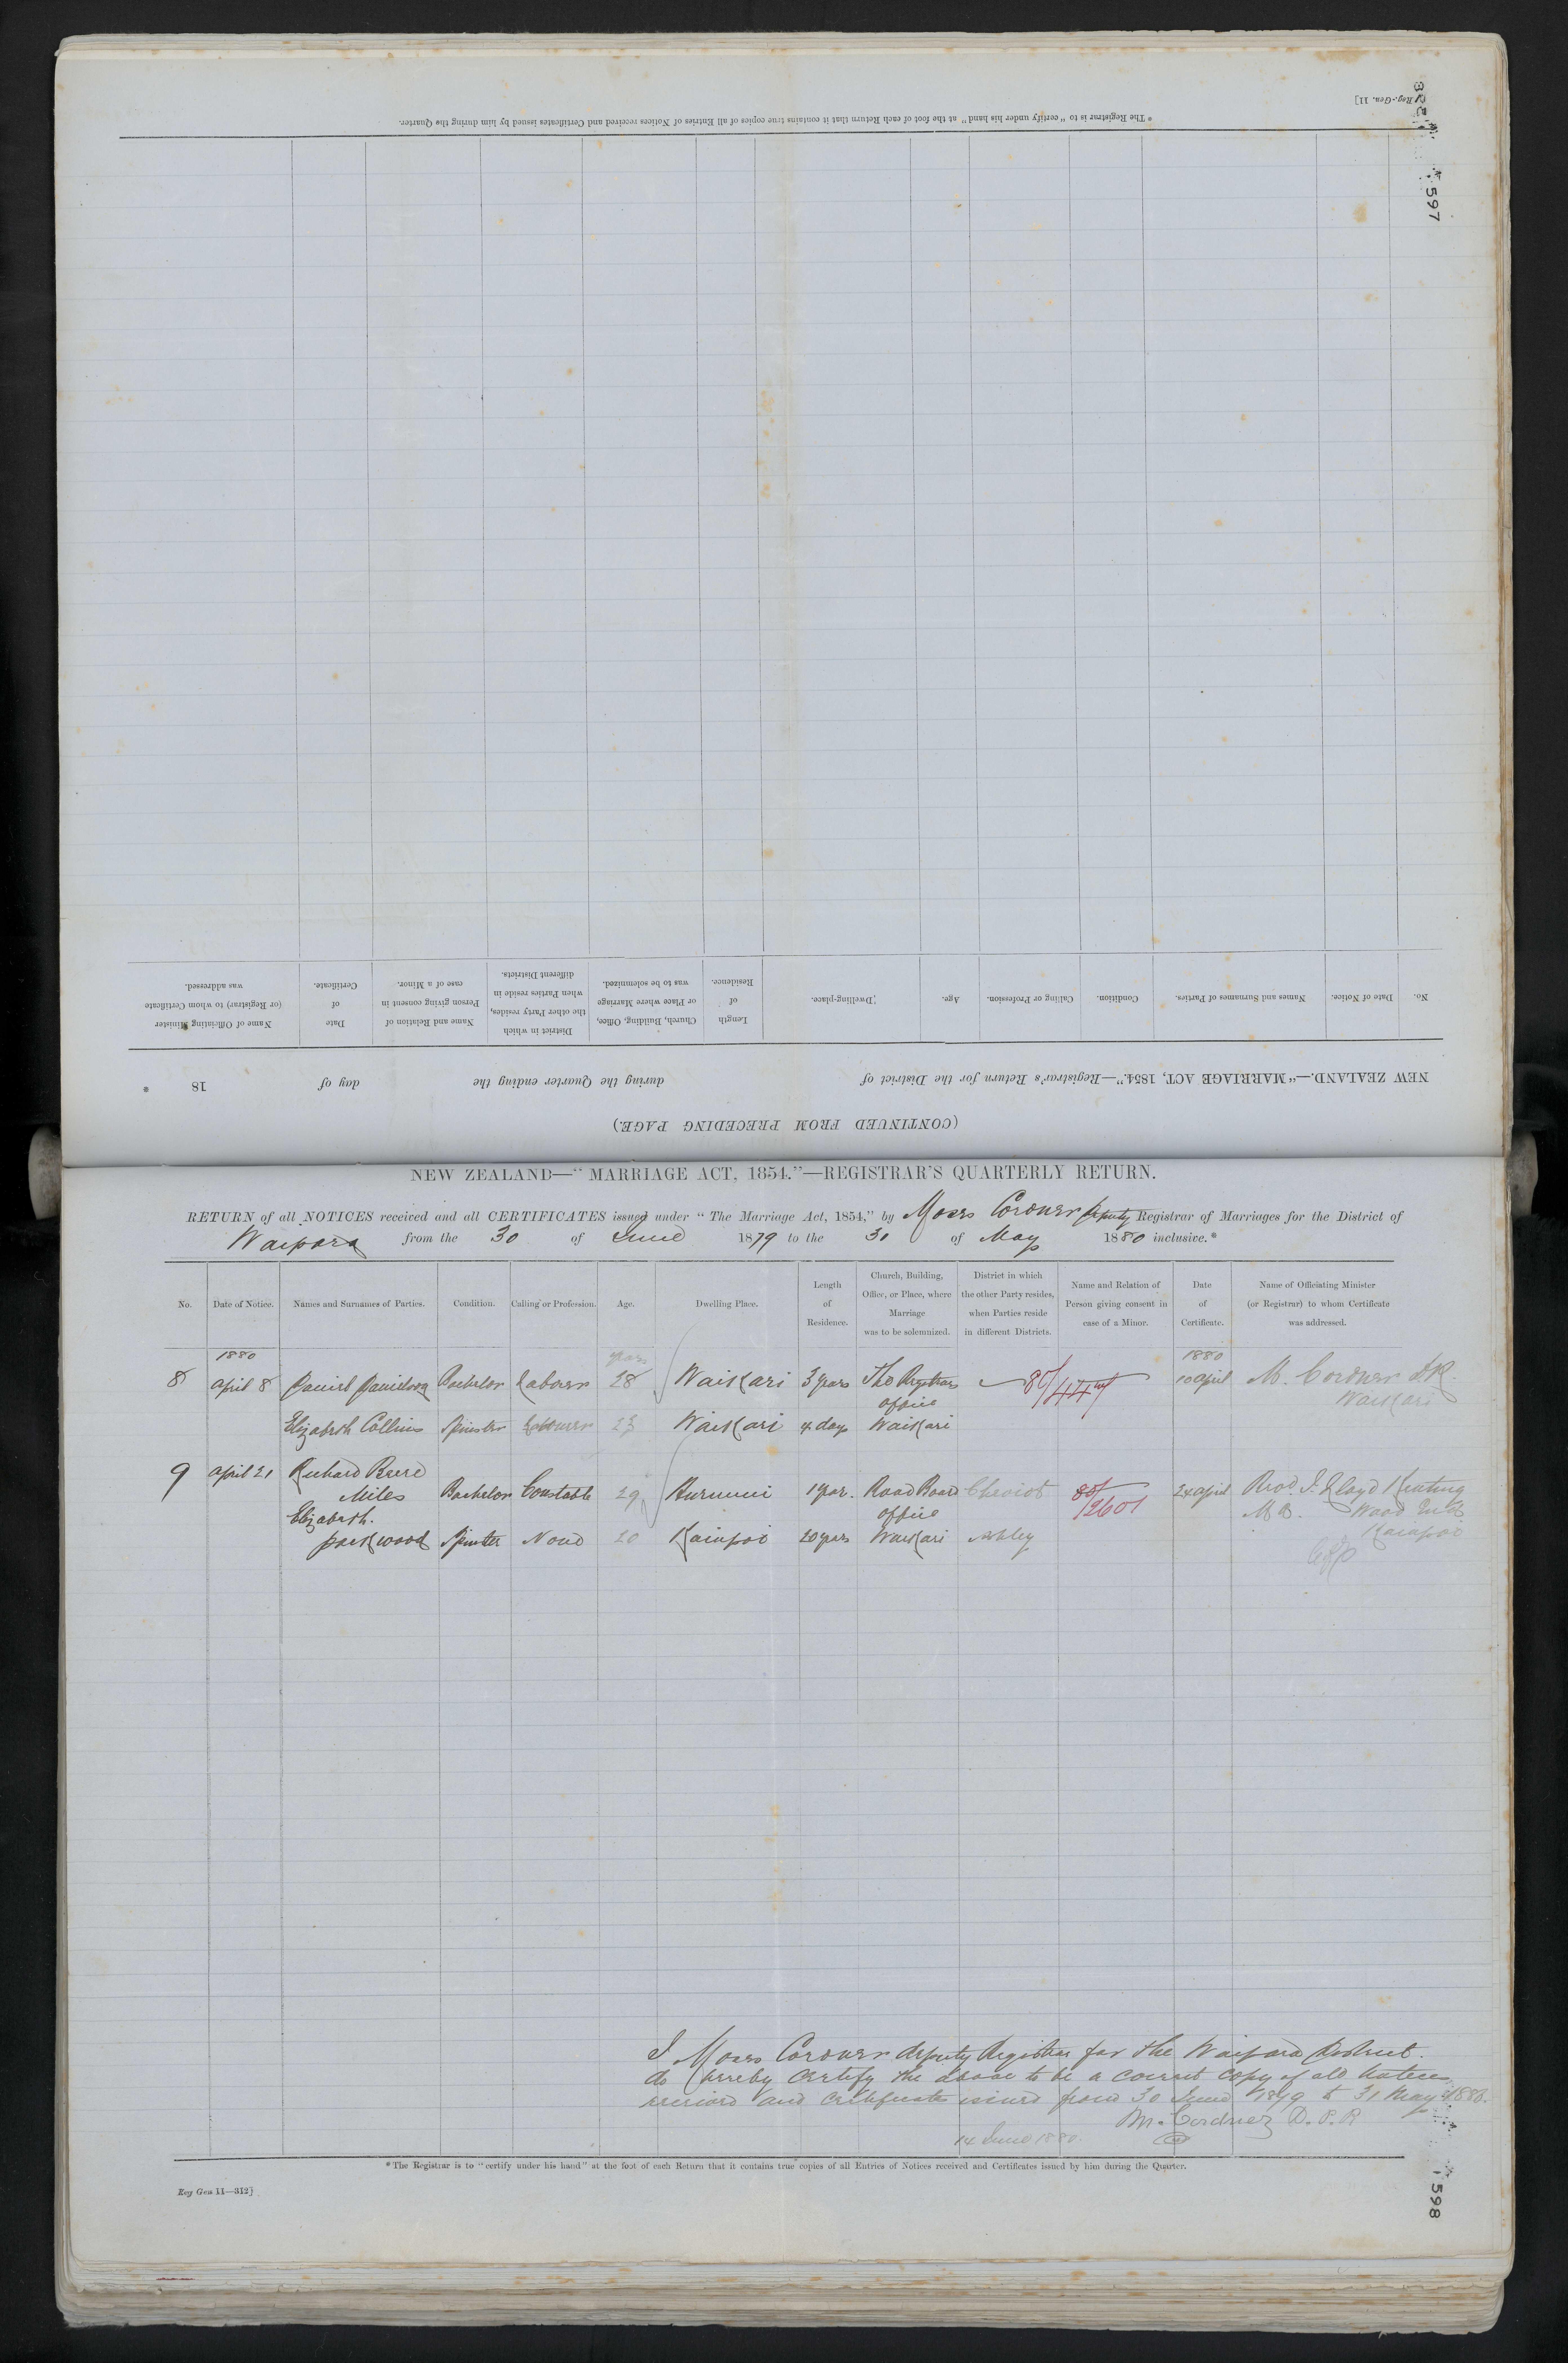 *The Registrar is to "certify under his hand" at the foot of each Return that it contains true copies of all Entries of Notices received and Certificates issued by him during the Quarter.
Reg.-Gen. 11]
1597
Name of Officiating Minister (or Registrar) to whom Certificate was addressed.
Date of Certificate.
Name and Relation of Person giving consent in case of a Minor.
District in which the other Party resides, when Parties reside in different Districts.
Church, Building, Office, or Place where Marriage was to be solemnized.
Length of Residence.
Dwelling-place.
Age.
Calling or Profession.
Condition.
Names and Surnames of Parties.
Date of Notice.
No.
NEW ZEALAND.—"MARRIAGE ACT, 1854."—Registrar's Return for the District of during the Quarter ending the day of 18 *
(CONTINUED FROM PRECEDING PAGE.)
NEW ZEALAND—"MARRIAGE ACT, 1854."—REGISTRAR'S QUARTERLY RETURN.
RETURN of all NOTICES received and all CERTIFICATES issued under "The Marriage Act, 1854," by Moses Cordner deputy Registrar of Marriages for the District of
Waipara from the 30 of June 1879 to the 31 of May 1880 inclusive.*
No. Date of Notice. Names and Surnames of Parties. Condition. Calling or Profession. Age. Dwelling Place. Length of Residence. Church, Building, Office, or Place, where Marriage was to be solemnized. District in which the other Party resides, when Parties reside in different Districts. Name and Relation of Person giving consent in case of a Minor. Date of Certificate. Name of Officiating Minister (or Registrar) to whom Certificate was addressed.
1880 years 1880
8 april 8 Daniel Davidson Bachelor Laborer 28 Waikari 3 years The Registrars office 80/ 10 april M. Cordner D.R.
Waikari
Elizabeth Collins Spinster 23 Waikari 4 days Waikari
9 april 21 Richard Beere
Miles Bachelor Constable 29 Hurunui 1 year. Road Board office Cheviot 80/2601 24 april Revd. J. Lloyd Keating
Elizabeth. M.B. Wood Ends
parkwood Spinster None 20 Kaiapoi 20 years Waikari Ashley Kaiapoi
I Moses Cordner deputy Registrar for the Waipara District.
do hereby certify the above to be a correct copy of all notices
received and certificates issued from 30 June 1879 to 31 May 1880.
M. Cordner D. P. R
14 June 1880.
*The Registrar is to "certify under his hand" at the foot of each Return that it contains true copies of all Entries of Notices received and Certificates issued by him during the Quarter.
Reg Gen 11—312]
1598